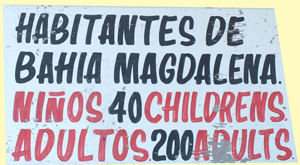 HABITANTES DE
BAHIA MAGDALENA.
NIÑOS 40 CHILDRENS.
ADULTOS 200 ADULTS